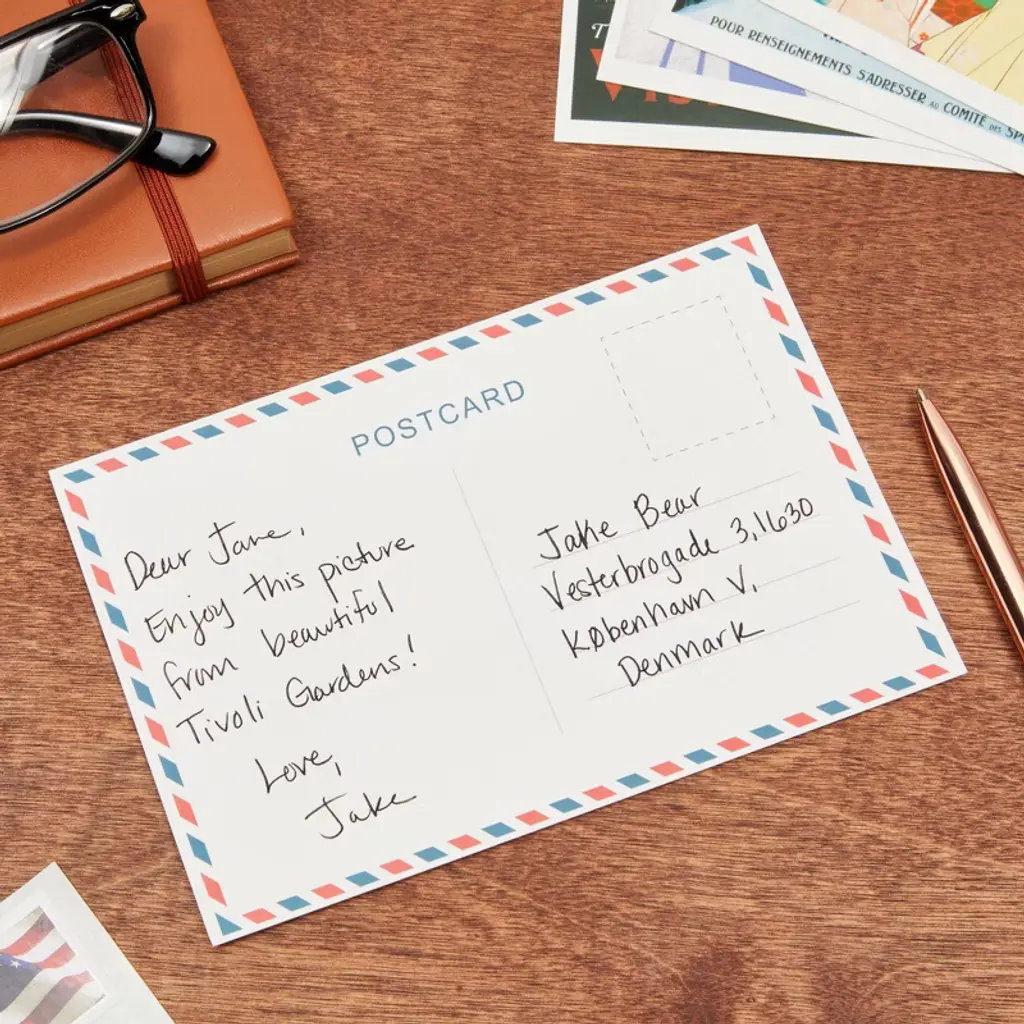 POUR RENSEIGNEMENTS S'ADRESSER AU COMITÉ DES
POSTCARD
Dear Jane,
Enjoy this picture
from beautiful
Tivoli Gardens!
Love,
Jake
Jake Bear
Vesterbrogade 3, 1630
København V,
Denmark